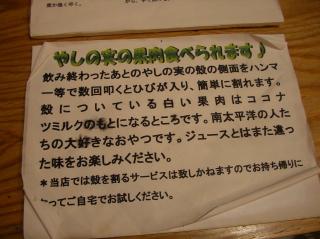 やしの実の果肉食べられます♪
飲み終わったあとのやしの実の殻の側面をハンマ
ー等で数回叩くとひびが入り、簡単に割れます。
殻についている白い果肉はココナ
ツミルクのもとになるところです。南太平洋の人た
ちの大好きなおやつです。ジュースとはまた違っ
た味をお楽しみください。
*当店では殻を割るサービスは致しかねますのでお持ち帰りに
なってご自宅でお試しください。